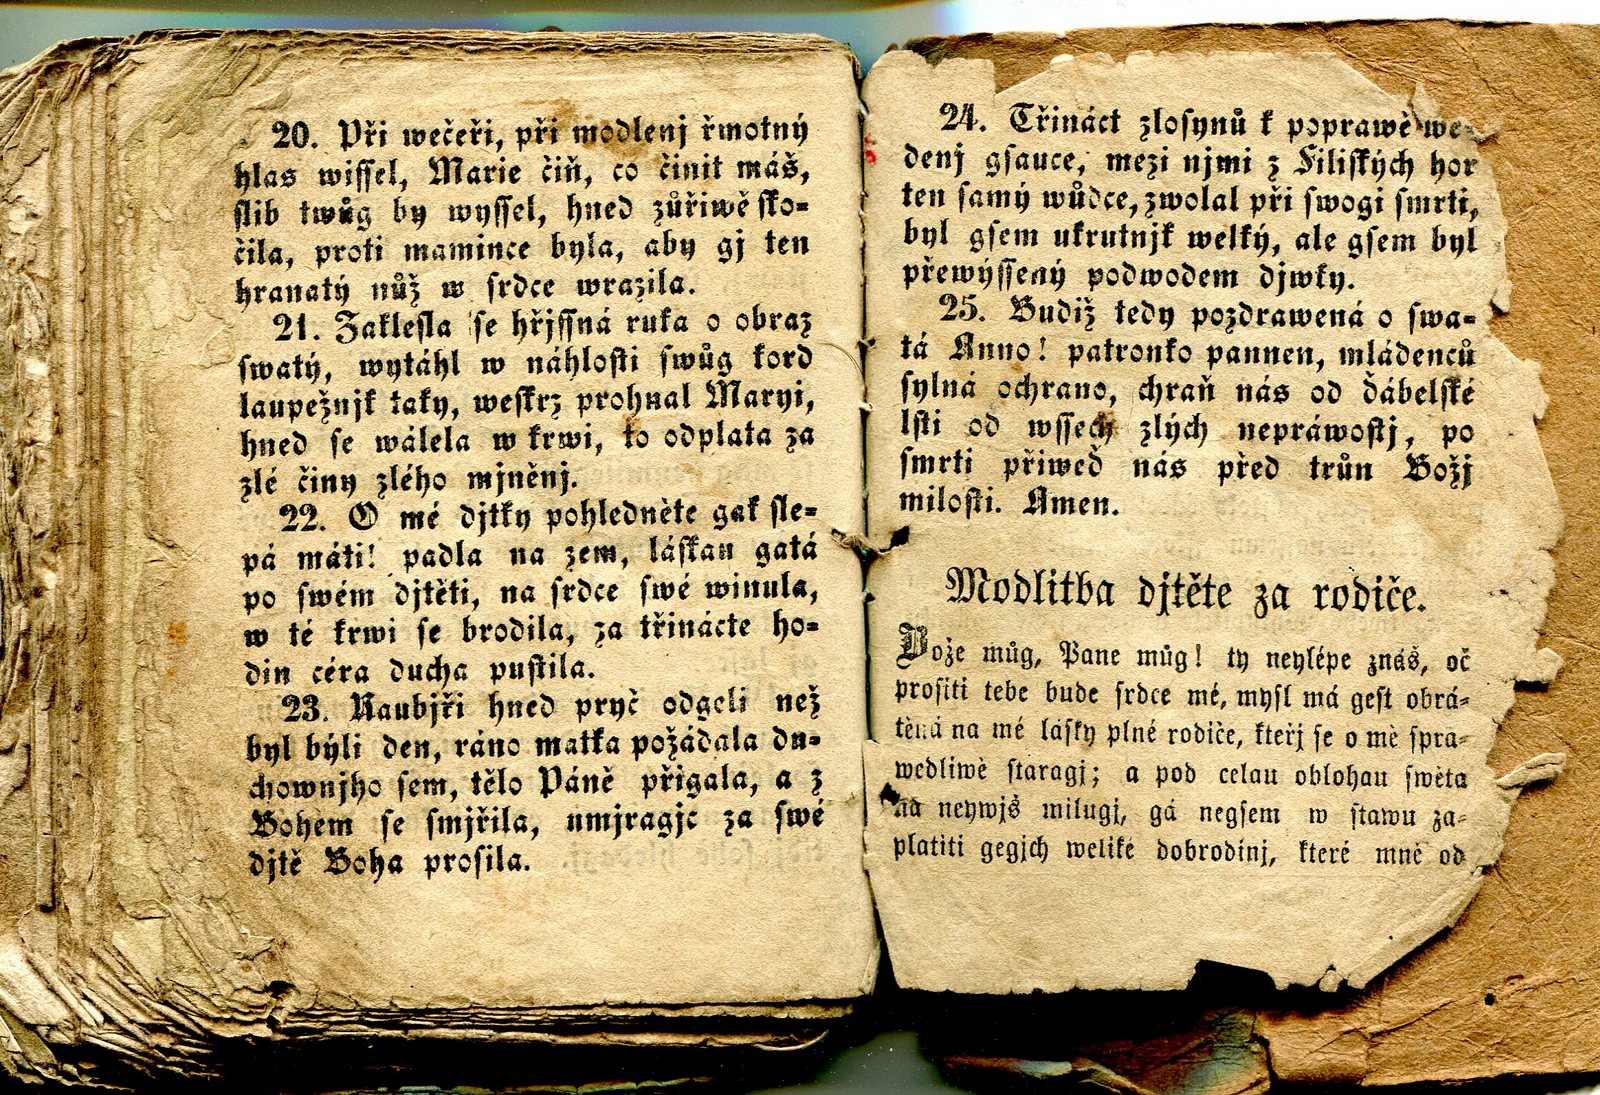 20. Při wečeři, při modlenj řmotný
hlas wissel, Marie čiň, co činit máš,
slib twůg by wyssel, hned zůřiwě sko-
čila, proti mamince byla, aby gj ten
hranatý nůž w srdce wrazila.
21. Zaklesla se hřjssná ruka o obraz
swatý, wytáhl w náhlosti swůg kord
laupežnjk taky, weskrz prohnal Maryi,
hned se wálela w krwi, to odplata za
zlé činy zlého mjněnj.
22. O mé djtky pohledněte gak sle-
pá máti! padla na zem, láskau gatá
po swém djtěti, na srdce swé winula,
w té krwi se brodila, za třinácte ho-
din céra ducha pustila.
23. Raubjři hned pryč odgeli než
byl býli den, ráno matka požádala du-
chownjho sem, tělo Páně přigala, a z
Bohem se smjřila, umjragjc za swé
djtě Boha prosila.
24. Třináct zlosynů k poprawě we-
denj gsauce, mezi njmi z Filiských hor
ten samý wůdce, zwolal při swogi smrti,
byl gsem ukrutnjk welký, ale gsem byl
přewýssený podwodem djwky.
25. Budiž tedy pozdrawená o swa-
tá Anno! patronko pannen, mládenců
sylná ochrano, chraň nás od ďábelské
lsti od wssech zlých nepráwostj, po
smrti přiweď nás před trůn Božj
milosti. Amen.
Modlitba djtěte za rodiče.
Bože můg, Pane můg! ty neylépe znáš, oč
prositi tebe bude srdce mé, mysl má gest obrá-
těná na mé lásky plné rodiče, kteřj se o mě spra-
wedliwě staragj; a pod celau oblohau swěta
na neywjš milugj, gá negsem w stawu za-
platiti gegjch weliké dobrodinj, které mně od